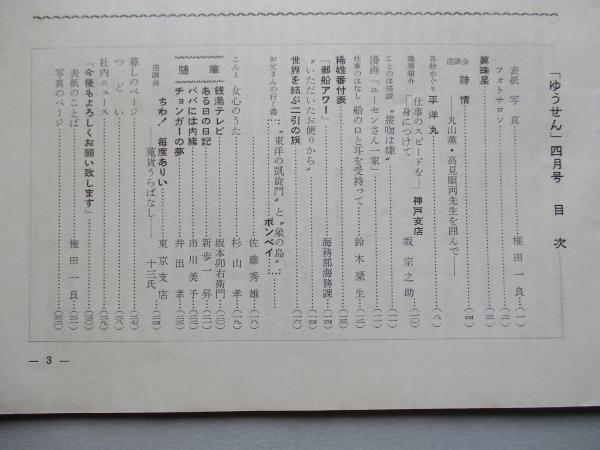 「ゆうせん」四月号　目次
表紙写真……権田一良…(一)
フォトサロン……(二)
眞珠星……(三)
座談会　詩情……(四)
――丸山薫・高見順両先生を囲んで――
各船めぐり　平洋丸……(八)
職場紹介　「仕事のスピードを　身につけて」　神戸支店　坂宗之助…(一〇)
ことのは漫談　“接吻は嫌”……(一一)
漫画「ユーセンさん一家」……(一一)
仕事のはなし　船の口と耳を受持って……鈴木豪生…(一二)
稀姓番付表……(一三)
「郵船アワー」……海務部海務課…(一四)
“いただいたお便りから”……(一四)
世界を結ぶ二引の旗……(一六)
お父さんの行く港　“東洋の凱旋門”と“象の島”…ボンベイ…佐藤秀雄…(一八)
こんと　女心のうた……杉山孝…(一九)
随筆
銭湯テレビ……坂本卯右衛門…(二〇)
ある日の日記……新歩一昇…(二一)
パパには内緒……市川美子…(二二)
チョンガーの夢……井出孝…(二三)
座談会　ちわ！　毎度ありい　東京支店
菟貨うらばなし　十三氏…(二四)
暮しのページ……(二七)
つどい……(二八)
社内ニュース……(二九)
「今後もよろしくお願い致します」……(三〇)
表紙のことば……権田一良…(三一)
写真のページ……(三二)
— 3 —